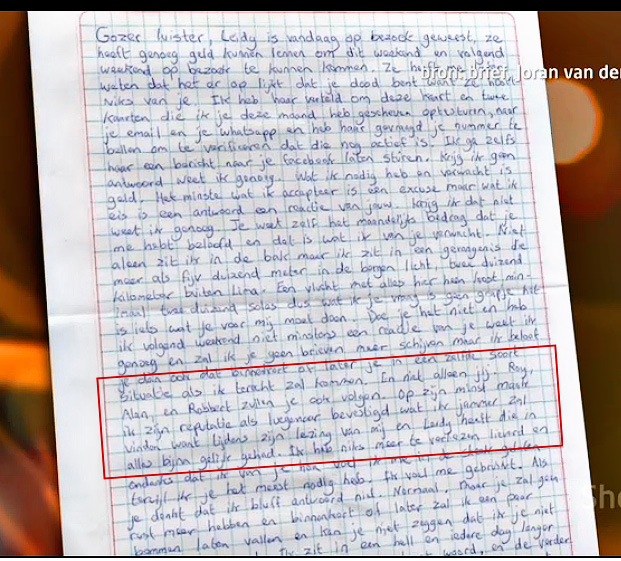 Gozer luister, Leidy is vandaag op bezoek geweest, ze
heeft genoeg geld kunnen lenen om dit weekend en volgend
weekend op bezoek te kunnen kommen. Ze heeft me laten
bron: brief Joran van der
weten dat het er op lijkt dat je dood bent want ze hoort
niks van je. Ik heb haar verteld om deze kaart en twee
kaarten die ik je deze maand heb geschreven opTesturen, naar
je email en je whatsapp en heb haar gevraagd je nummer te
bellen om te verifieren dat die nog actief is. Ik ga zelfs
haar een bericht naar je facebook laten sturen. Krijg ik geen
antwoord weet ik genoeg. Wat ik nodig heb en verwacht is
geld. Het minste wat ik accepteer is een excuse maar wat ik
eis is een antwoord een reactie van jouw. Krijg ik dat niet
weet ik genoeg. Je weet zelf het maandelijks bedrag dat je
me hebt beloofd en dat is wat ik van je verwacht. Niet
alleen zit ik in de bak maar ik zit in een gevangenis die
meer als fijv duizend meter in de bergen licht, twee duizend
kilometer buiten Lima. Een vlucht met alles hier heen loopt min-
imaal twee duizend soles dus wat ik je vraag is geen grapje het
is iets wat je voor mij moet doen. Doe je het niet en heb
ik volgend weekend niet minstens een reactie van je weet ik
genoeg en zal ik je geen brieven meer schijven maar ik beloof
je dan ook dat binnenkort of later je in een zelfde soort
situatie als ik terecht zal kommen. En niet alleen jij. Roy,
Alan, en Robbert zullen je ook volgen. Op zijn minst maak
ik zijn reputatie als leugenaar bevestigd wat ik jammer zal
vinden want tijdens zijn lezing van mij en Leidy heeft die in
alles bijna gelijk gehad. Ik heb niks meer te verliezen lichard en
ondanks dat ik van je hou voel ik me in de steek gelaten
terwijl ik je het meest nodig heb. Ik voel me gebruikt. Als
je denkt dat ik bluff antwoord niet. Normaal. Maar je zal geen
rust meer hebben en binnenkort of later zal ik een paar
bommen laten vallen en kan je niet zeggen dat ik je niet
Ik zit in een hell en iedere dag langer
woord, en de verder